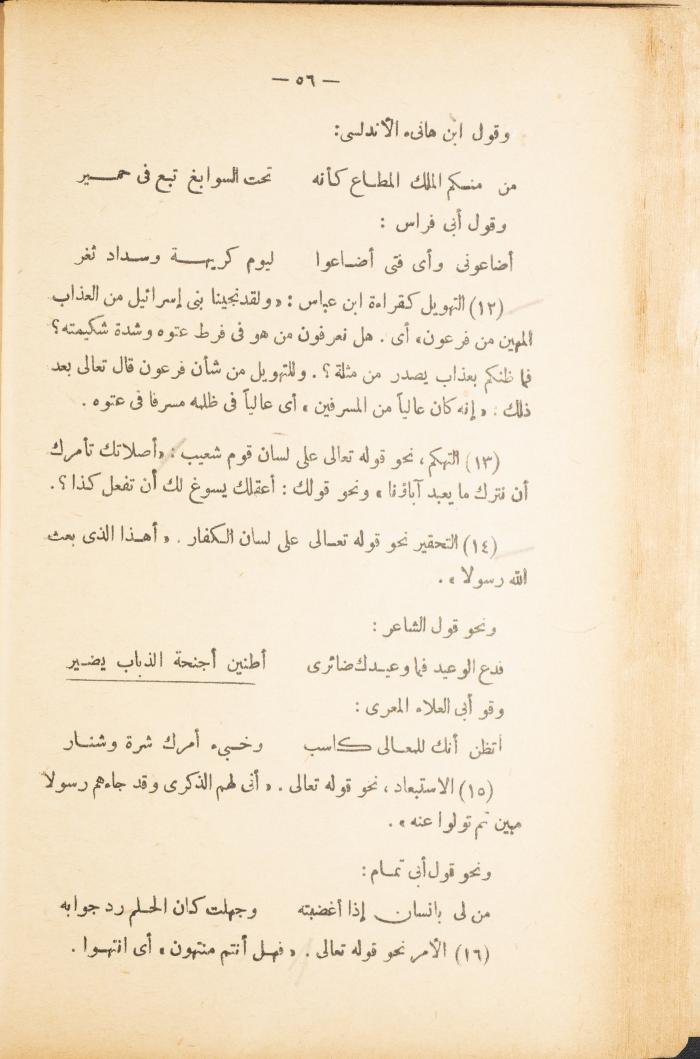 — ٥٦ —
وقول ابن هانىء الأندلسى:
من منكم الملك المطاع كأنه تحت السوابغ تبع فى حمير
وقول أبى فراس :
أضاعونى وأى فتى أضاعوا ليوم كريهة وسداد ثغر
(١٢) التهويل كقراءة ابن عباس : «ولقد نجينا بنى إسرائيل من العذاب
المهين من فرعون» أى . هل تعرفون من هو فى فرط عتوه وشدة شكيمته؟
فما ظنكم بعذاب يصدر من مثلة ؟ . وللتهويل من شأن فرعون قال تعالى بعد
ذلك : « إنه كان عالياً من المسرفين » أى عالياً فى ظلمه مسرفا فى عتوه .
(١٣) التهكم، نحو قوله تعالى على لسان قوم شعيب : «أصلاتك تأمرك
أن نترك ما يعبد آباؤنا » ونحو قولك : أعقلك يسوغ لك أن تفعل كذا ؟ .
(١٤) التحقير نحو قوله تعالى على لسان الكفار . « أهذا الذى بعث
الله رسولا » .
ونحو قول الشاعر :
فدع الوعيد فما وعيدك ضائرى أطنين أجنحة الذباب يضير
وقو أبى العلاء المعرى :
أتظن أنك للمعالى كاسب وخبىء أمرك شرة وشنار
(١٥) الاستبعاد ، نحو قوله تعالى . « أنى لهم الذكرى وقد جاءهم رسولا
مبين ثم تولوا عنه » .
ونحو قول أبى تمام :
من لى بانسان إذا أغضبته وجهلت كان الحلم رد جوابه
(١٦) الأمر نحو قوله تعالى . « فهل أنتم منتهون » أى انتهوا .